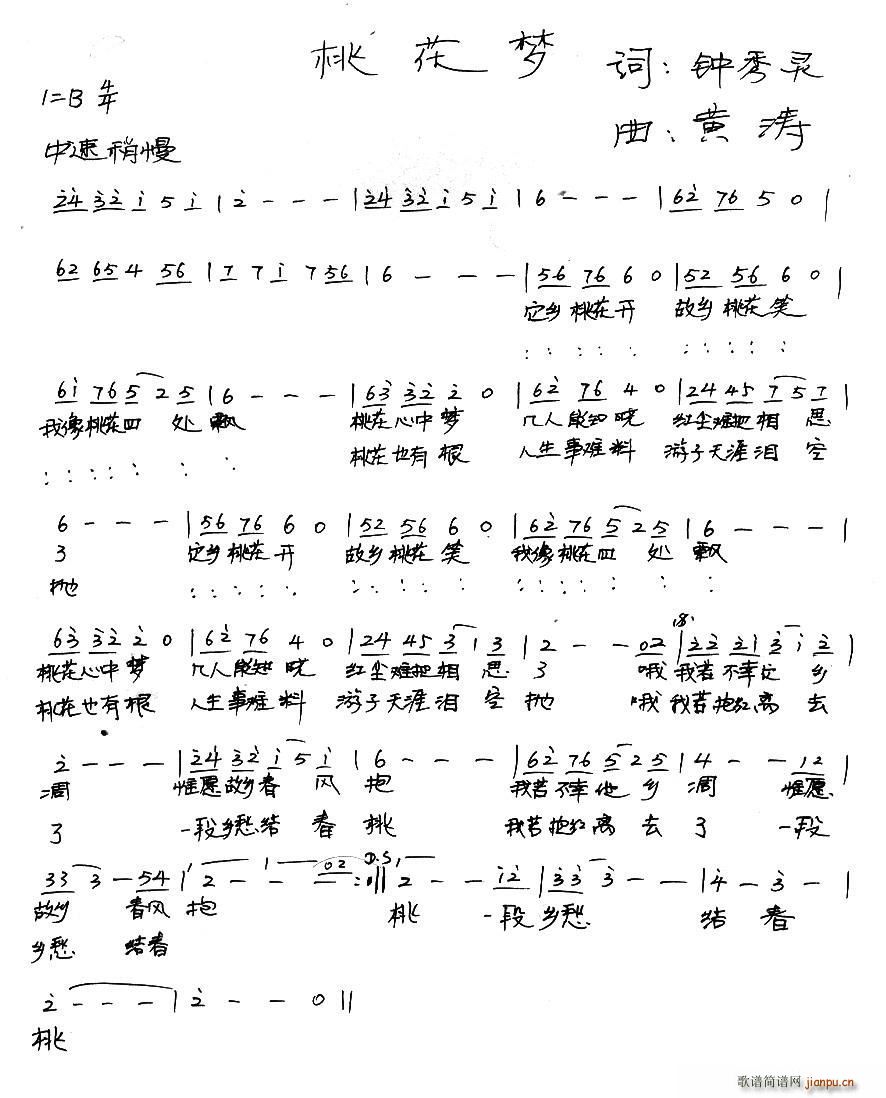 桃花梦
词：钟秀灵
1=B 4/4
曲：黄涛
中速稍慢
24 32 1 5 1 | 2 - - - | 24 32 1 5 1 | 6 - - - | 62 76 5 0 |
62 65 4 56 | 7 7 1 7 56 | 6 - - - | 56 76 6 0 | 52 56 6 0 |
它乡桃花开 故乡桃花笑
: : : : : : : : : :
61 76 5 2 5 | 6 - - - | 63 32 2 0 | 62 76 4 0 | 24 45 7 5 7
我像桃花四 处 飘 桃花心中梦 几人能知晓 红尘难把相 思
: : : : : : : 桃花也有根 人生事难料 游子天涯泪 空
6 - - - | 56 76 6 0 | 52 56 6 0 | 62 76 5 2 5 | 6 - - - |
了 它乡桃花开 故乡桃花笑 我像桃花四 处 飘
抛 : : : : : : : : : : : : : : : : :
63 32 2 0 | 62 76 4 0 | 24 45 3 1 3 | 2 - - 02 | 22 21 3 1 2 |
桃花心中梦 几人能知晓 红尘难把相 思 了 哦 我若不幸他 乡
桃花也有根 人生事难料 游子天涯泪 空 抛 哦 我若抱红离 去
2 - - - | 24 32 1 5 1 | 6 - - - | 62 76 5 2 5 | 4 - - 12 |
凋 惟愿故乡春 风 抱 我若不幸他 乡 凋 惟愿
了 一段乡愁结 春 桃 我若抱红离 去 了 一段
33 3 - 54 | 2 - - - 02 :|| D.S. 2 - - 12 | 33 3 - - | 4 - 3 - |
故乡 春风 抱 桃 一段乡愁 结 春
乡愁 结春
2 - - - | 2 - - 0 ||
桃
歌谱简谱网 jianpu.cn